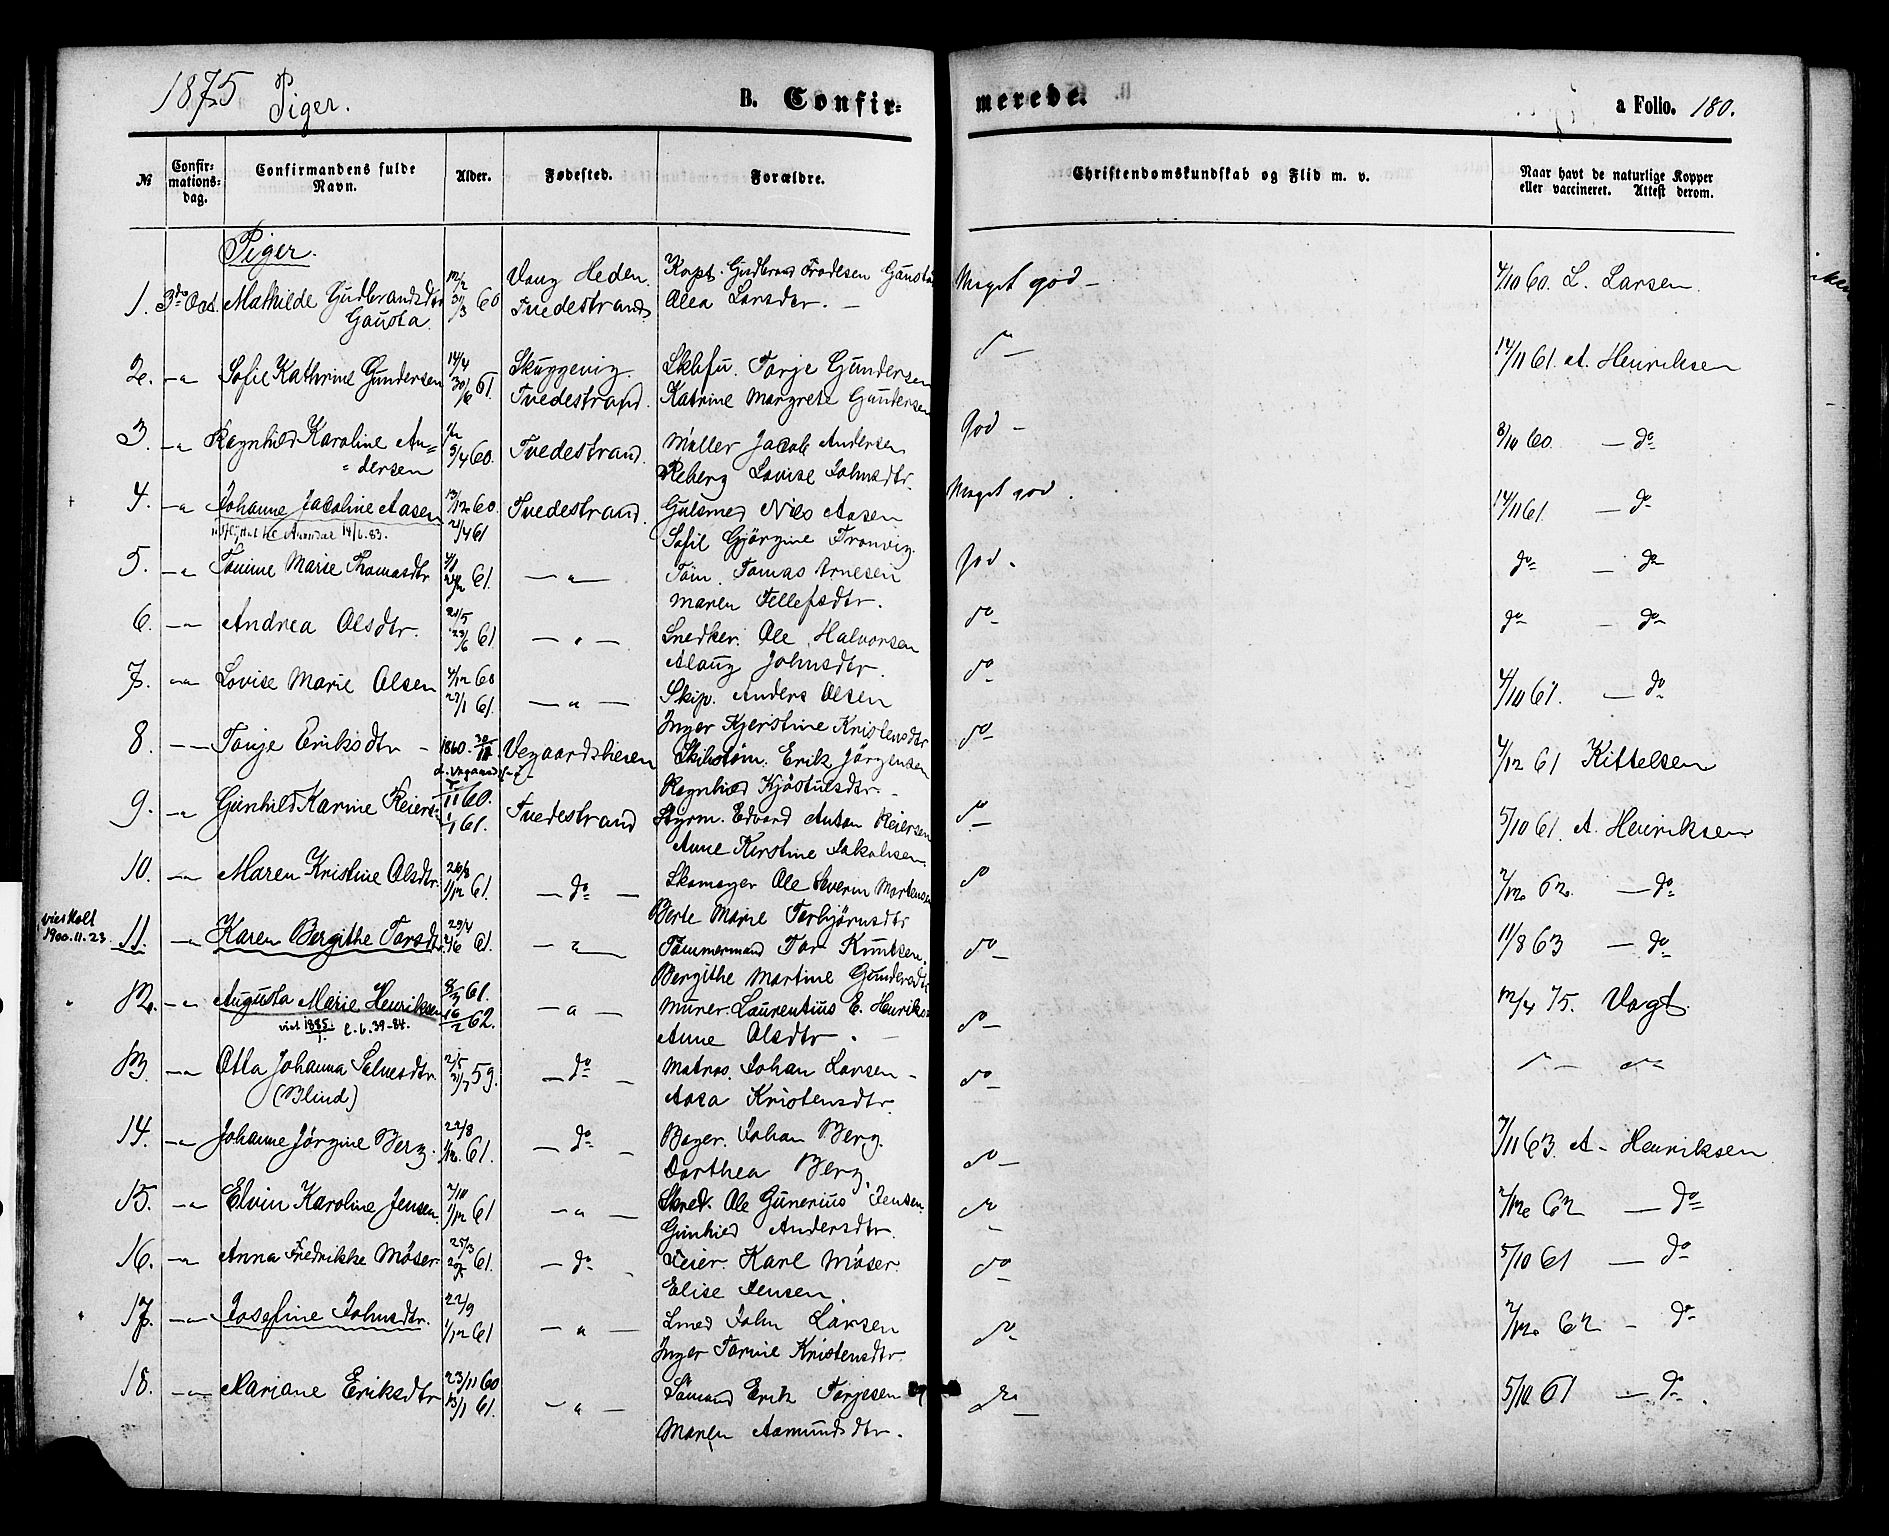 1875 Piger.
B. Confir-
merede.
a Folio. 180.
№
Confir-
mations-
dag.
Confirmandens fulde
Navn.
Alder.
Fødested.
Forældre.
Christendomskundskab og Flid m. v.
Naar havt de naturlige Kopper
eller vaccineret. Attest derom.
Piger.
1. 3die Oct. Mathilde Gudbrandsdtr 31/3 60 Vang Heden Kapt. Gudbrand Frodesen Gausta Meget god - 4/10 60. L. Larsen.
Gausta. Tvedestrand Olea Larsdtr. -
2. -"- Sofie Kathrine Gundersen 14/4 Skuggevig. Torje Gundersen do 12/11 61. A. Henriksen
30/6 61. Tvedestrand. Katrine Margrete Gundersen
3. -"- Ragnhild Karoline An- Tvedestrand. Møller Jacob Andersen God - 8/10 60. - do
=dersen 9/4 60. Reberg Lovise Johnsdtr.
4. -"- Johanne Jacobine Aasen 13/12 60. Tvedestrand. Gulsmed Nils Aasen Meget god. 12/11 61. - do
Arendal 14/6.83. 21/4 61 Sofie Gjørgine Tronvig.
5. -"- Tomine Marie Thomasdtr 61. -"- Tøm. Tomas Arnesen God. do - do
Maren Tellefsdtr.
6. -"- Andrea Olsdtr. 21/5 -"- Snedker. Ole Halvorsen do do - do
23/6 61. Alaug Johnsdtr.
7. -"- Lovise Marie Olsen 4/12 60 -"- Skip. Anders Olsen do 4/10 61. - do
27/1 61. Inger Kjerstine Kristensdtr
8. -"- Tonje Eriksdtr - 1860. Vegaardsheien Erik Jørgensen do 4/12 61 Kittelsen
Ragnhild Kjøstulsdtr. -
9. -"- Gunhild Karine Reiers. /11 60. Tvedestrand Styrm. Edvard Anton Reiersen do 5/10 61. A. Henriksen
1/1 61. Anne Kerstine Jakobsen.
10. -"- Maren Kristine Olsdtr. 26/8 - do - Skomager Ole Severin Mortensen do 2/12 62. - do
1/12 61. Berte Marie Torbjørnsdtr
1900.11.23. 11. -"- Karen Bergithe Torsdtr. 29/4 -"- Tømmermand Tor Knutsen. do 11/8 63 - do
2/6 61. Bergithe Martine Gundersdtr
12. -"- Augusta Marie Henriksen 8/7 61. -"- Murer. Laurentius E. Henriks: do 12/4 75. Vogt.
viet 1885. L. 6. 39-84. 16/2 62. Anne Olsdtr. -
13. -"- Otta Johanna Salvesdtr. 2/5 - do - Matros. Johan Larsen - do
(Blind) 21/7 59. Aasa Kristensdtr.
14. -"- Johanne Jørgine Berg. 22/8 - do - Bager. Johan Berg. do 7/11 63. A- Henriksen
1/12 61. Dorthea Berg.
15. -"- Elvin Karoline Jensen. 2/10 -"- Skred. Ole Gunerius Jensen. do 2/12 62 - do
1/12 61 Gunhild Andersdtr.
16. -"- Anna Fredrikke Møser. 25/3 - do - Feier. Karl Møser. do 5/10 61 - do
61. Elise Jensen.
17. -"- Josefine Johnsdtr. 22/9 -"- Smed John Larsen do 2/12 62 - do
1/12 61 Inger Torine Kristensdtr.
18. -"- Mariane Eriksdtr 23/11 60 -"- Sømand Erik Torjesen do 5/10 61 - do.
13/1 61. Maren Aamundsdtr.